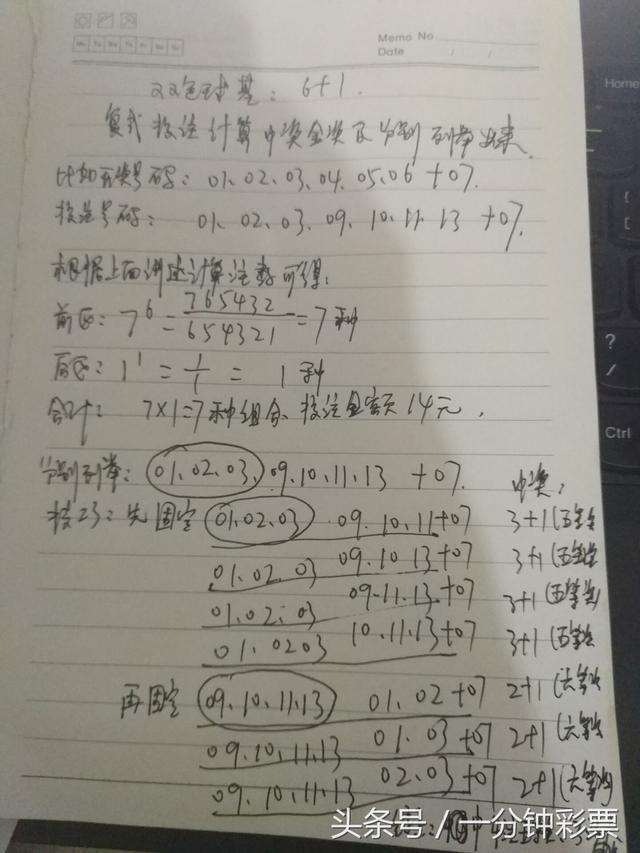 Memo No.
Mo Tu We Th Fr Sa Su
Date / /
双色球基: 6+1.
复式投注计算中奖金奖及分别列举出来.
比如开奖号码: 01.02.03.04.05.06 +07.
投注号码: 01.02.03.09.10.11.13 +07.
根据上面讲述计算注数可得:
前区: 7⁶ = 765432/654321 = 7种
后区: 1¹ = 1/1 = 1种
合计: 7×1=7种组合、投注金额14元.
分别列举: 01.02.03.09.10.11.13 +07. 中奖:
技巧: 先固定 01.02.03 09.10.11+07 3+1(五等
01.02.03 09.10.13+07 3+1(五等
01.02.03 09.11.13+07 3+1(五等奖)
01.0203 10.11.13+07 3+1(五等
再固定 09.10.11.13 01.02+07 2+1(六等
09.10.11.13 01.03+07 2+1(六等
09.10.11.13 02.03+07 2+1(六等
头条号/一分钟彩票
Home
?
/
Ctrl